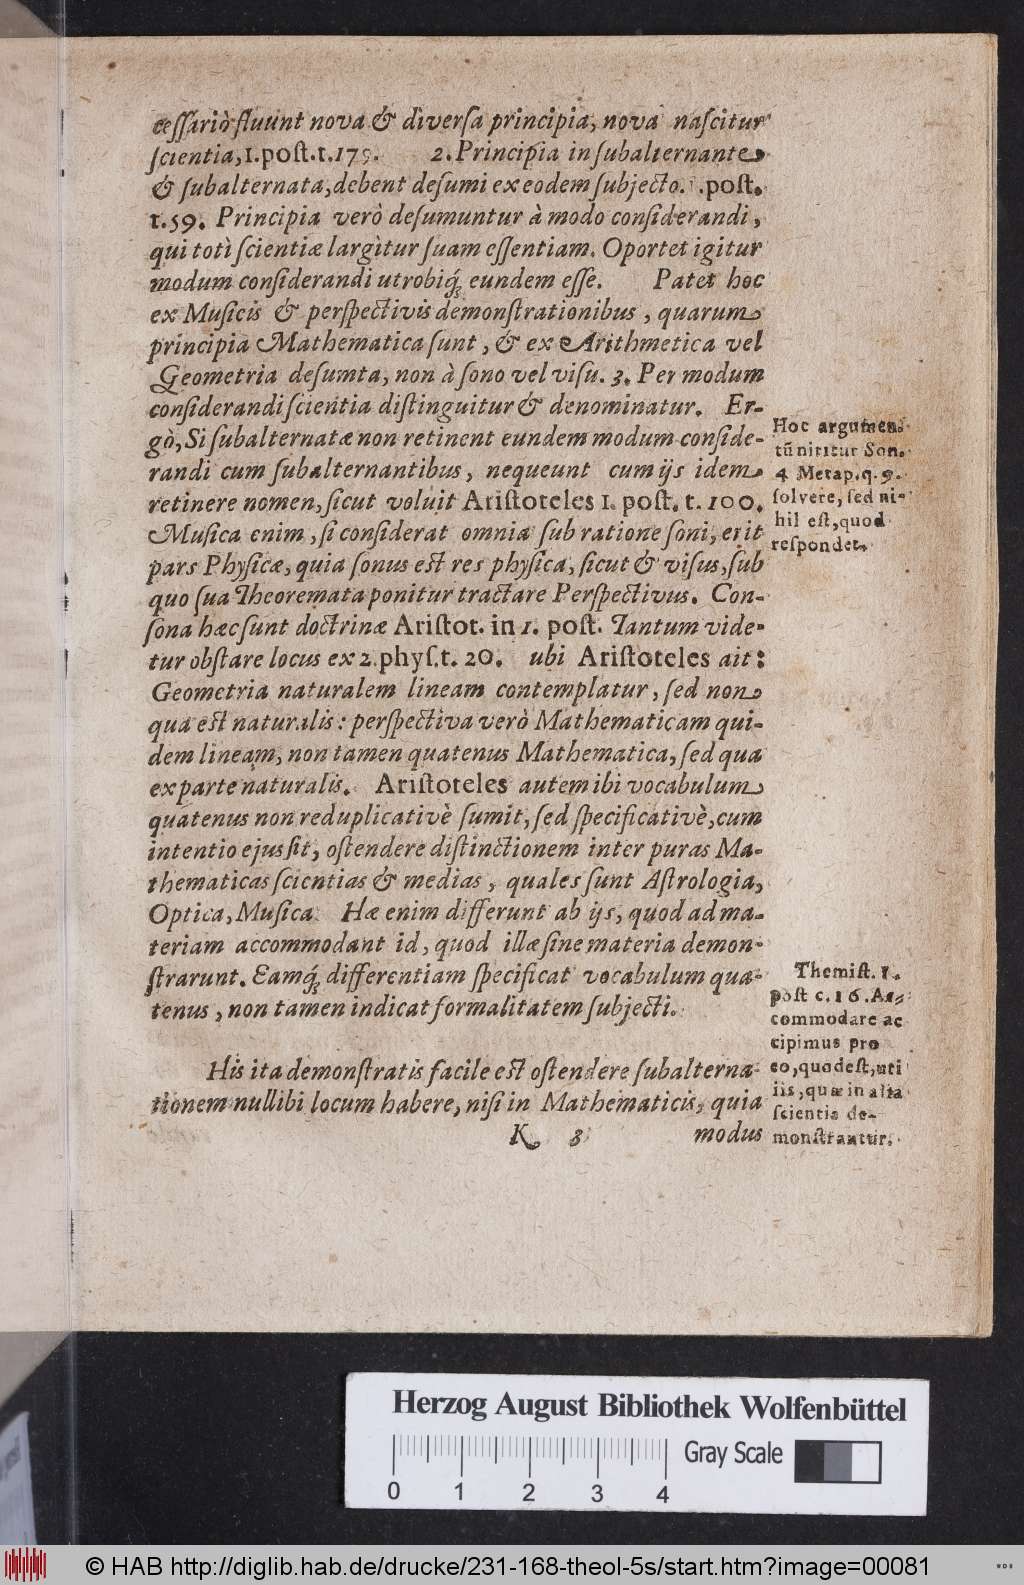 ceſſariò fluunt nova & diverſa principia, nova naſcitur
ſcientia, 1. poſt. t. 175. 2. Principia in ſubalternante
& ſubalternata, debent deſumi ex eodem ſubjecto. .poſt.
t. 59. Principia verò deſumuntur à modo conſiderandi,
qui toti ſcientiæ largitur ſuam eſſentiam. Oportet igitur
modum conſiderandi utrobiq́ꝫ eundem eſſe. Patet hoc
ex Muſicis & perſpectivis demonſtrationibus, quarum
principia Mathematica ſunt, & ex Arithmetica vel
Geometria deſumta, non à ſono vel viſu. 3. Per modum
conſiderandi ſcientia diſtinguitur & denominatur. Er-
gò, Si ſubalternatæ non retinent eundem modum conſide-
randi cum ſubalternantibus, nequeunt cum ijs idem
retinere nomen, ſicut voluit Ariſtoteles 1. poſt. t. 100.
Muſica enim, ſi conſiderat omnia ſub ratione ſoni, erit
pars Phyſicæ, quia ſonus eſt res phyſica, ſicut & viſus, ſub
quo ſua Theoremata ponitur tractare Perſpectivus. Con-
ſona hæc ſunt doctrinæ Ariſtot. in 1. poſt. Tantum vide-
tur obſtare locus ex 2. phyſ. t. 20. ubi Ariſtoteles ait:
Geometria naturalem lineam contemplatur, ſed non
qua eſt naturalis: perſpectiva verò Mathematicam qui-
dem lineam, non tamen quatenus Mathematica, ſed qua
ex parte naturalis. Ariſtoteles autem ibi vocabulum
quatenus non reduplicativè ſumit, ſed ſpecificativè, cum
intentio ejus ſit, oſtendere diſtinctionem inter puras Ma-
thematicas ſcientias & medias, quales ſunt Aſtrologia,
Optica, Muſica. Hæ enim differunt ab ijs, quod ad ma-
teriam accommodant id, quod illæ ſine materia demon-
ſtrarunt. Eamq́ꝫ differentiam ſpecificat vocabulum qua-
tenus, non tamen indicat formalitatem ſubjecti.
His ita demonſtratis facile eſt oſtendere ſubalterna-
tionem nullibi locum habere, niſi in Mathematicis, quia
K 3 modus
Hoc argumen-
tũ nititur Son.
4 Metap. q. 9.
ſolvere, ſed ni-
hil eſt, quod
reſpondet.
Themiſt. 1.
poſt c. 16. Ac-
commodare ac
cipimus pro
eo, quod eſt, uti
iis, quæ in alia
ſcientia de-
monſtrantur.
Herzog August Bibliothek Wolfenbüttel
Gray Scale
0 1 2 3 4
© HAB http://diglib.hab.de/drucke/231-168-theol-5s/start.htm?image=00081